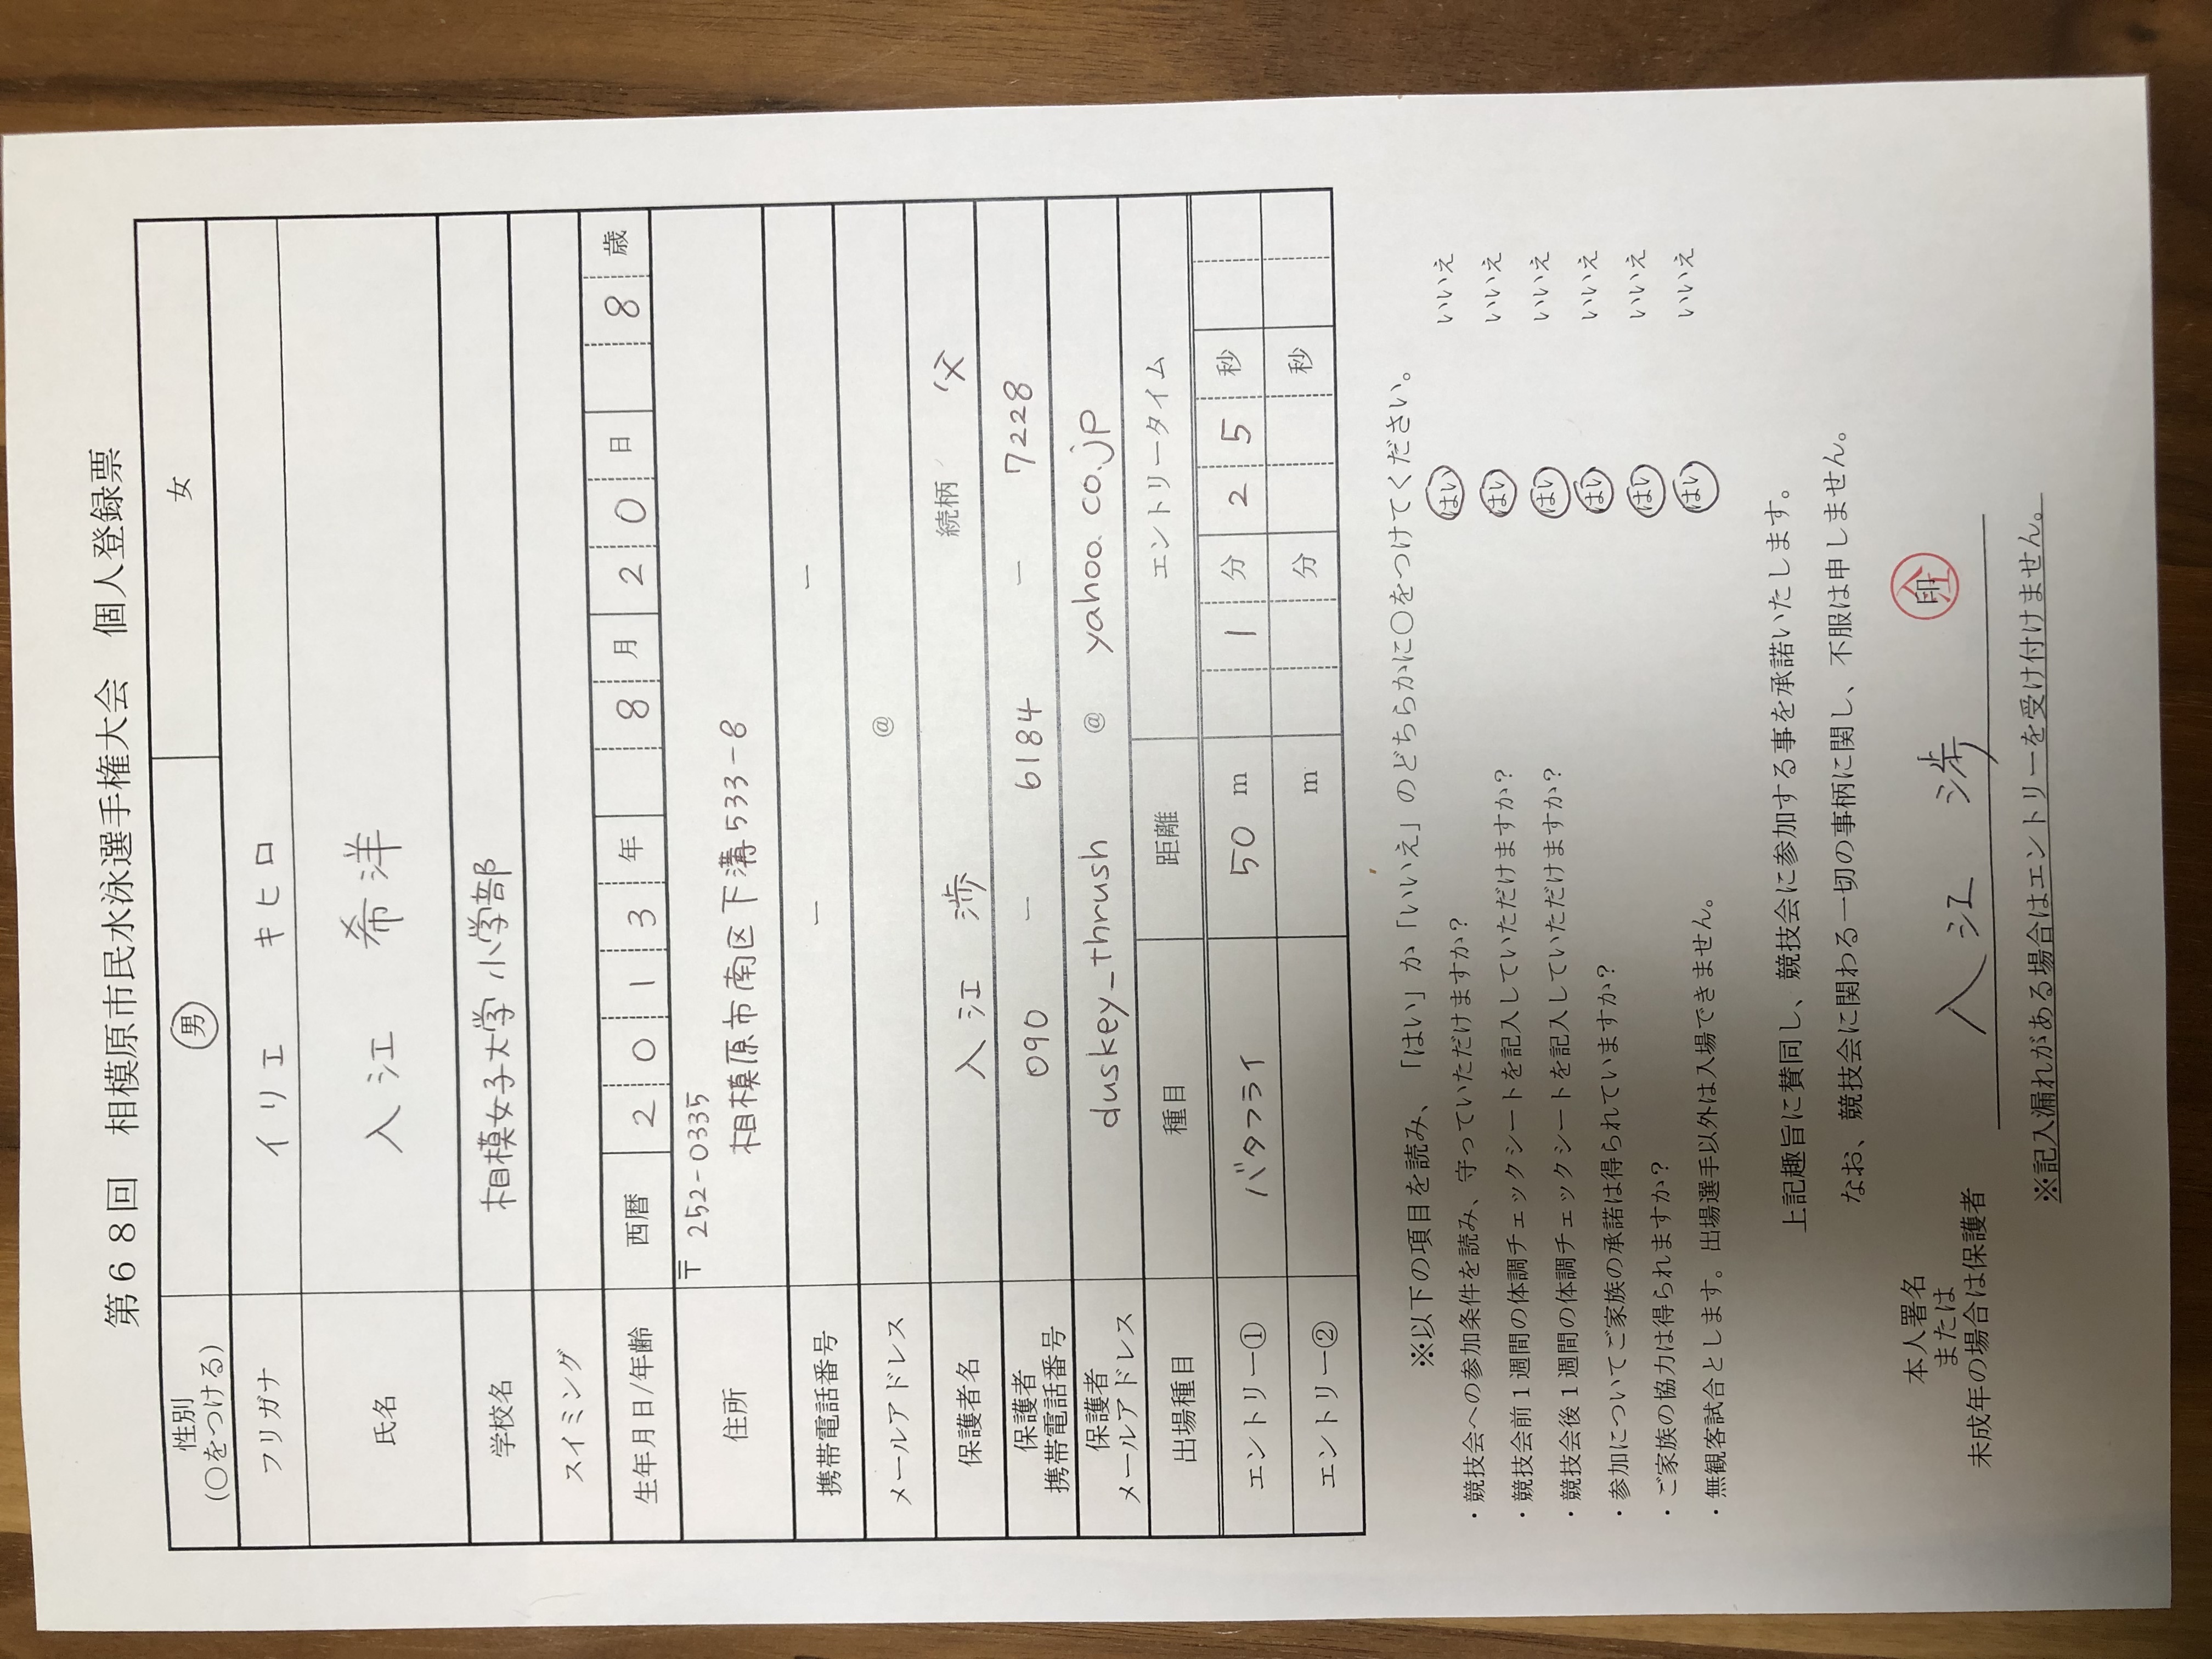 第６８回　相模原市民水泳選手権大会　個人登録票
性別
(○をつける)　男　女
フリガナ　イリエ　キヒロ
氏名　入江　希洋
学校名　相模女子大学 小学部
スイミング
生年月日/年齢　西暦　2013年　8月20日　8歳
住所　〒 252-0335
相模原市南区下溝533-8
携帯電話番号　－　－
メールアドレス　@
保護者名　入江　渉　続柄　父
保護者
携帯電話番号　090　－　6184　－　7228
保護者
メールアドレス　duskey_thrush @ yahoo.co.jp
出場種目　種目　距離　エントリータイム
エントリー①　バタフライ　50 m　1分25秒
エントリー②　m　分　秒
※以下の項目を読み、「はい」か「いいえ」のどちらかに○をつけてください。
・競技会への参加条件を読み、守っていただけますか？　はい　いいえ
・競技会前１週間の体調チェックシートを記入していただけますか？　はい　いいえ
・競技会後１週間の体調チェックシートを記入していただけますか？　はい　いいえ
・参加についてご家族の承諾は得られていますか？　はい　いいえ
・ご家族の協力は得られますか？　はい　いいえ
・無観客試合とします。出場選手以外は入場できません。　はい　いいえ
上記趣旨に賛同し、競技会に参加する事を承諾いたします。
なお、競技会に関わる一切の事柄に関し、不服は申しません。
本人署名
または
未成年の場合は保護者　入江　渉　印　入江
※記入漏れがある場合はエントリーを受け付けません。